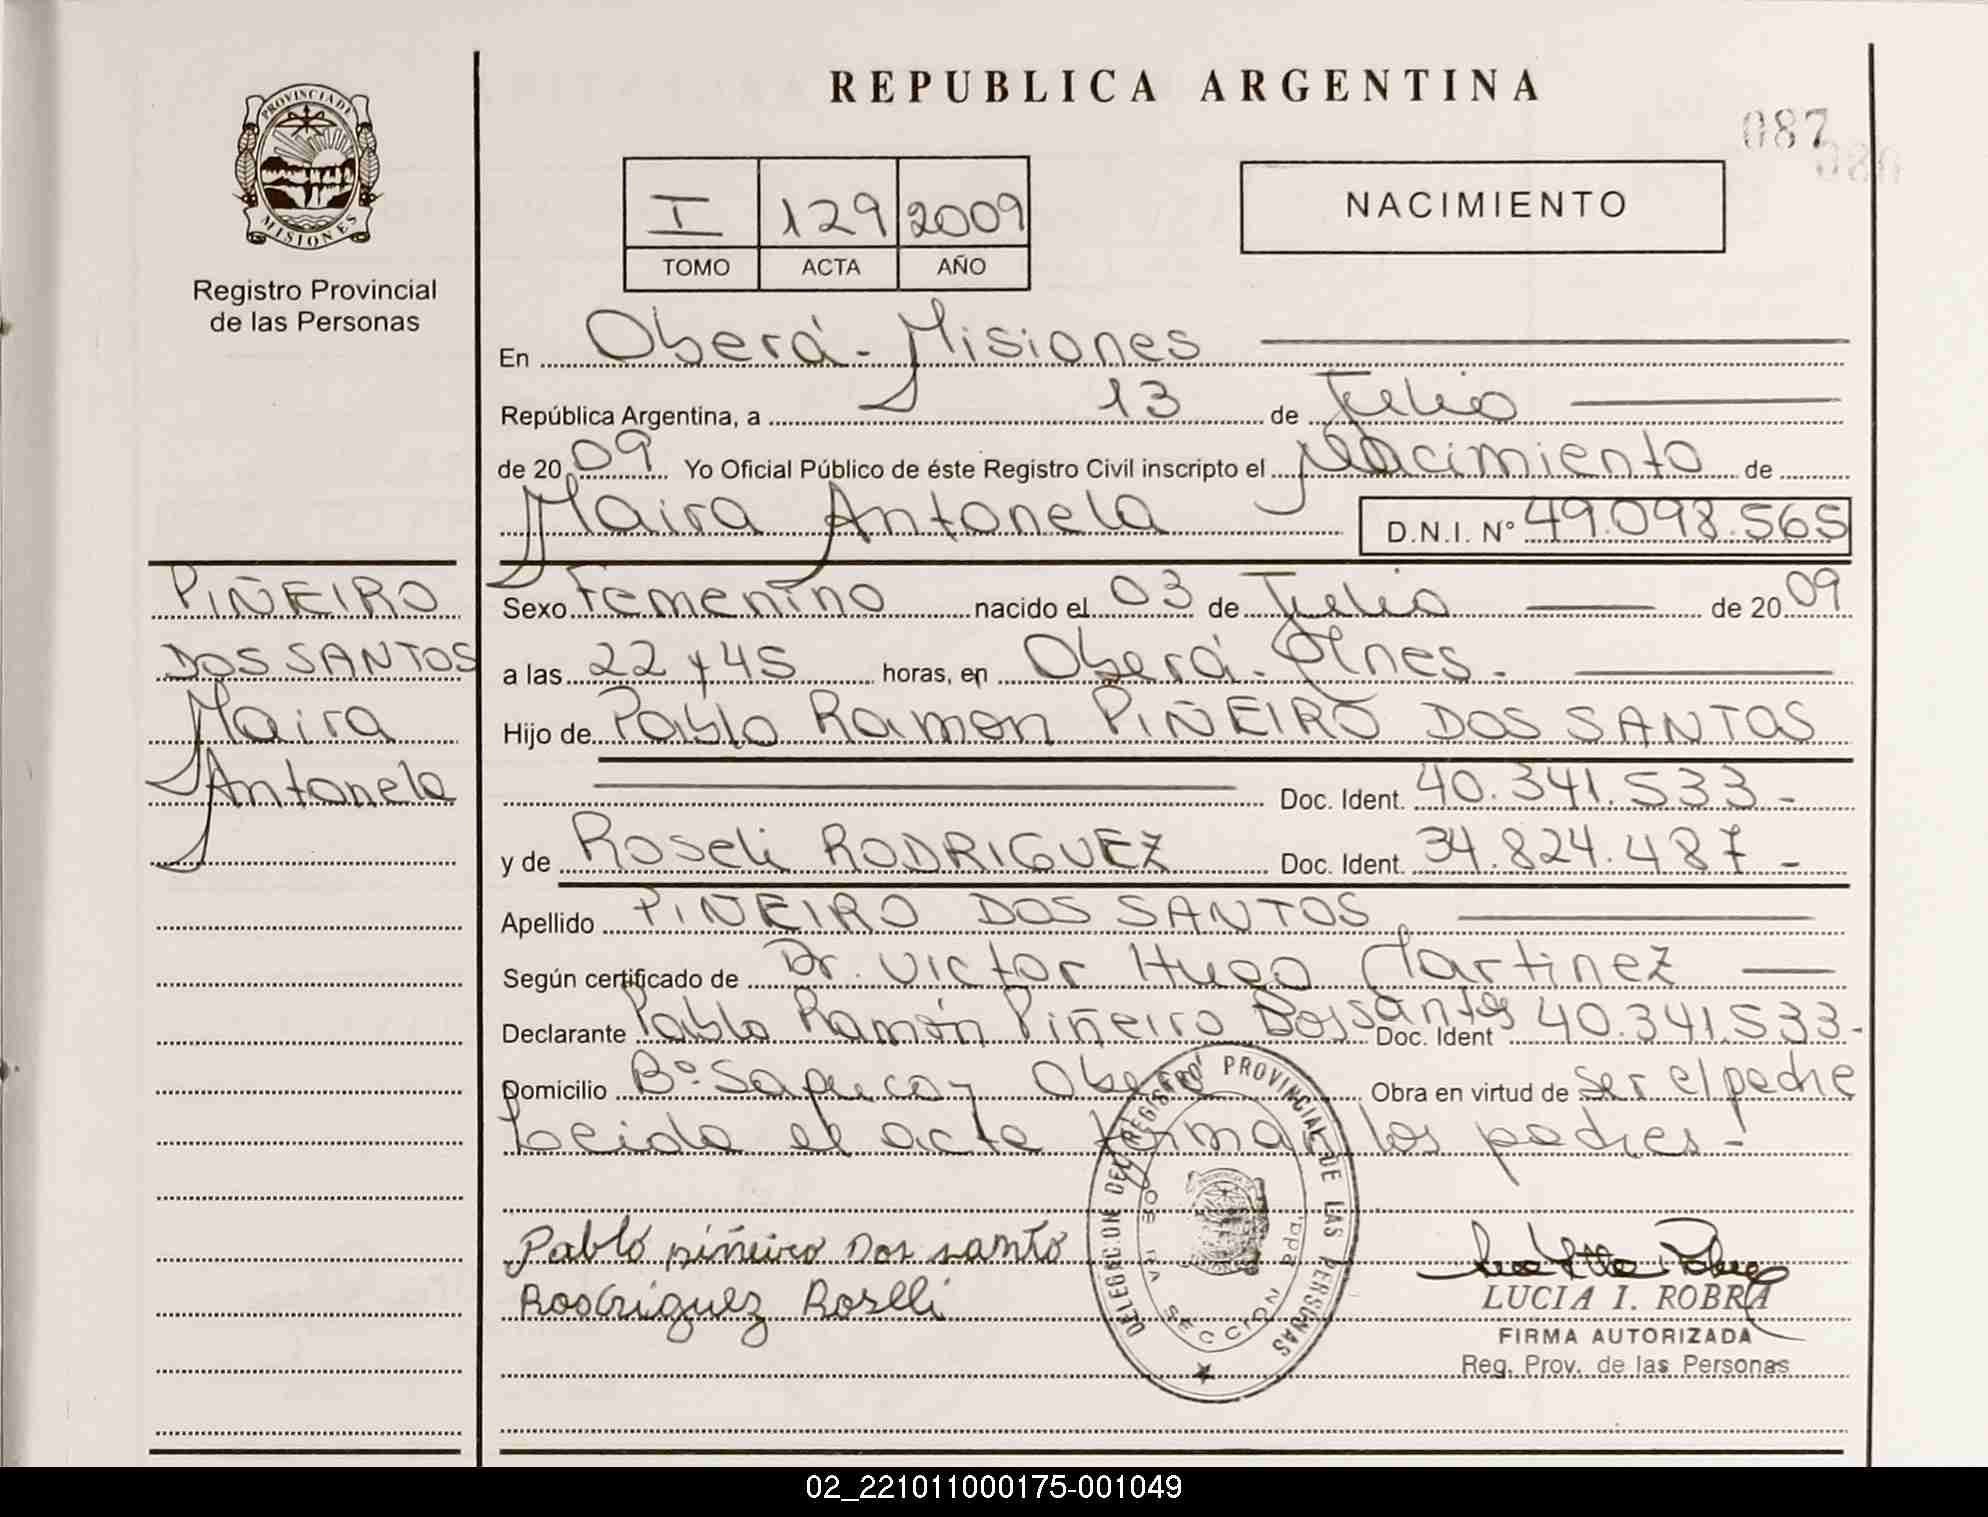 REPUBLICA ARGENTINA
087
080
PROVINCIA DE
MISIONES
Registro Provincial
de las Personas
I 129 2009
TOMO ACTA AÑO
NACIMIENTO
En Oberá - Misiones
República Argentina, a 13 de Julio
de 2009 Yo Oficial Público de éste Registro Civil inscripto el Nacimiento de
Maira Antonela D.N.I. Nº 49.098.565
PIÑEIRO
DOS SANTOS
Maira
Antonela
Sexo Femenino nacido el 03 de Julio de 2009
a las 22 y 45 horas, en Oberá - Mnes.
Hijo de Pablo Ramon PIÑEIRO DOS SANTOS
Doc. Ident. 40.341.533-
y de Roseli RODRIGUEZ Doc. Ident. 34.824.487-
Apellido PIÑEIRO DOS SANTOS
Según certificado de Dr. Victor Hugo Martinez
Declarante Pablo Ramón Piñeiro Dos Santos Doc. Ident 40.341.533-
Domicilio Bº Sapucay Oberá Obra en virtud de ser el padre
Leida el acta firman los padres-
Pablo piñeiro Dos santo
Rodriguez Roselli
DELEGACION DEL REGISTRO PROVINCIAL DE LAS PERSONAS
SECCION
LUCIA I. ROBRA
FIRMA AUTORIZADA
Reg. Prov. de las Personas
02_221011000175-001049